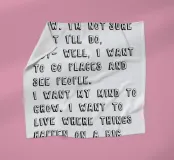 W. I'M NOT SURE
T I'LL DO,
WELL, I WANT
TO GO PLACES AND
SEE PEOPLE.
I WANT MY MIND TO
GROW. I WANT TO
LIVE WHERE THINGS
HAPPEN ON A BIG